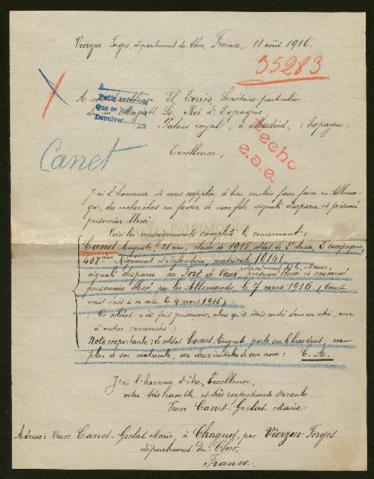 Vierzon-Forges, département du Cher, France, 11 août 1916.
35283
A Son Excellence El Torrès, Secrétaire particulier
de sa Majesté Le Roi d'Espagne
Palais royal, à Madrid, (Espagne)
Pedir
Que se
Devolver
Canet
Hecho
e.a.e.
Excellence,
J'ai l'honneur de vous supplier de bien vouloir faire faire en Allema-
gne, des recherches en faveur de mon fils, signalé disparu et présumé
prisonnier
Voici les renseignements complets le concernant:
Canet Auguste, 21 ans, classe de 1915 soldat de 2e classe, 5e compagnie,
408ème Régiment d'Infanterie, matricule 10141,
signalé disparu au Fort de Vaux
prisonnier par les Allemands le 7 mars 1916, (
9 mars 1916)
Ce soldat a été fait prisonnier, alors qu'il était
d'autres camarades:
Note importante: Le soldat Canet Auguste porte sur
plus de son matricule, ses deux initiales de son nom: C. A.
J'ai l'honneur d'être, Excellence,
votre très humble et très respectueuse servante.
Veuve Canet-Goctat Marie
Adresse: Veuve Canet-Goctat Marie, à Chagnof, par Vierzon-Forges
département du Cher
France.